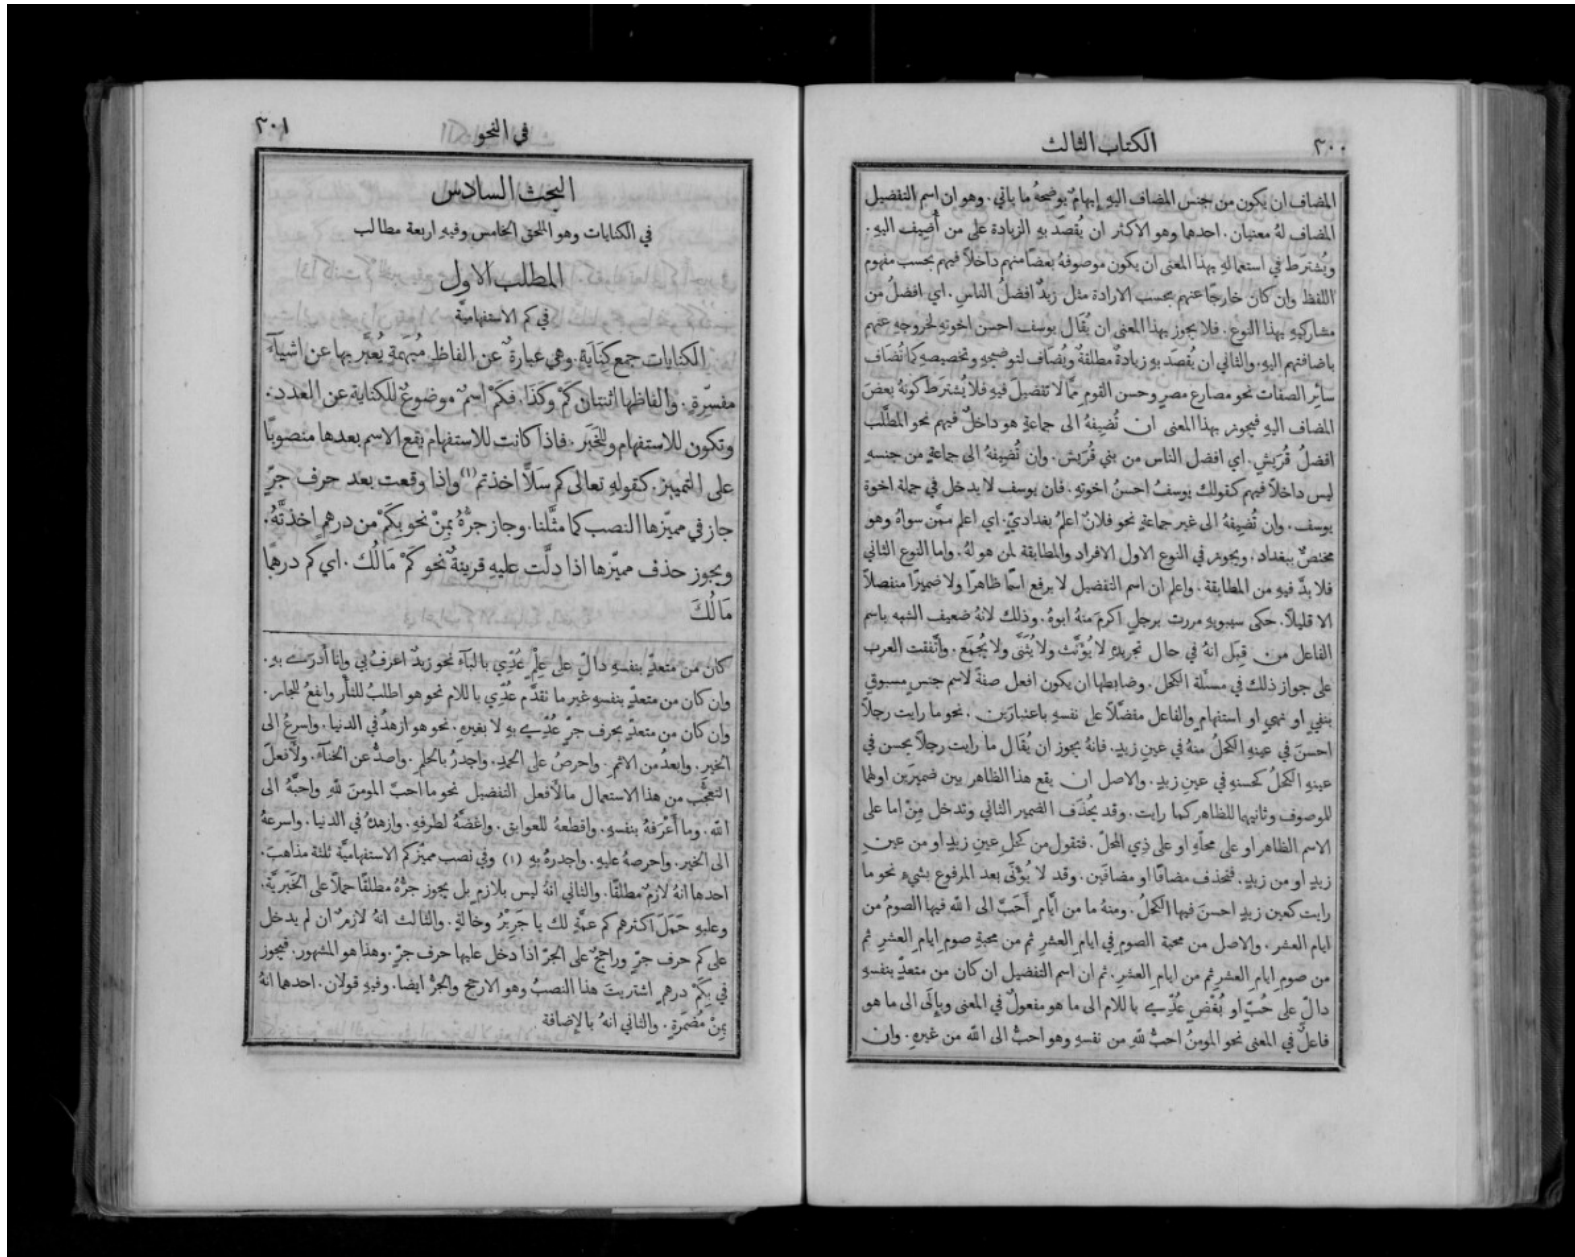 ٣٠٠
الكتاب الثالث
المضاف ان يكون من جنس المضاف اليهِ إِبهامٌ يوضحهُ ما ياتي. وهو ان اسم التفضيل
المضاف لهُ معنيان. احدهما وهو الاكثر ان يُقصَد بهِ الزيادة على من أُضيف اليهِ.
ويُشترَط في استعمالهِ بهذا المعنى ان يكون موصوفهُ بعضًا منهم داخلاً فيهم بحسب مفهوم
اللفظ وان كان خارجًا عنهم بحسب الارادة مثل زيدٌ افضلُ الناسِ. اي افضلُ من
مشاركيهِ بهذا النوع. فلا يجوز بهذا المعنى ان يُقَال يوسف احسن اخوتهِ لخروجهِ عنهم
باضافتهم اليهِ. والثاني ان يُقصَد بهِ زيادةٌ مطلقةٌ ويُضَاف لتوضيحهِ وتخصيصهِ كما تُضَاف
سائِر الصفات نحو مصارع مصرٍ وحسن القوم ِممَّا لا تفضيلَ فيهِ فلا يُشترَط كونهُ بعضَ
المضاف اليهِ فيجوز بهذا المعنى ان تُضيفهُ الى جماعةٍ هو داخلٌ فيهم نحو المطَّلب
افضلُ قُرَيشٍ. اي افضل الناس من بني قُرَيش. وان تُضِيفهُ الى جماعةٍ من جنسهِ
ليس داخلاً فيهم كقولك يوسفُ احسنُ اخوتهِ. فان يوسف لا يدخل في جملة اخوة
يوسف. وان تُضِيفهُ الى غير جماعةٍ نحو فلانٌ اعلمُ بغداديٍّ. اي اعلم ممَّن سواهُ وهو
مختصٌ ببغداد. ويجوز في النوع الاول الافراد والمطابقة لمن هو لهُ. واما النوع الثاني
فلا بدَّ فيهِ من المطابقة. واعلم ان اسم التفضيل لا يرفع اسمًا ظاهرًا ولا ضميرًا منفصلاً
الا قليلاً. حكى سيبويهِ مررت برجلٍ اكرمَ منهُ ابوهُ. وذلك لانهُ ضعيف الشبه باسم
الفاعل من قِبَل انهُ في حال تجريدهِ لا يُؤنَّث ولا يُثنَّى ولا يُجمَع. واتَّفقت العرب
على جواز ذلك في مسئلة الكحل. وضابطها ان يكون افعل صفةً لاسم جنسٍ مسبوقٍ
بنفيٍ او نهيٍ او استفهامٍ والفاعل مفضَّلاً على نفسهِ باعتبارَين. نحو ما رايت رجلاً
احسنَ في عينهِ الكحلُ منهُ في عينِ زيدٍ. فانهُ يجوز ان يُقَال ما رايت رجلاً يحسن في
عينهِ الكحلُ كحسنهِ في عينِ زيدٍ. والاصل ان يقع هذا الظاهر بين ضميرَين اولهما
للموصوف وثانيهما للظاهر كما رايت. وقد يُحذَف الضمير الثاني وتدخل مِنْ اما على
الاسم الظاهر او على محلّهِ او على ذِي المحلّ. فتقول من كحلِ عينِ زيدٍ او من عينِ
زيدٍ او من زيدٍ. فتحذف مضافًا او مضافَين. وقد لا يُؤتَى بعد المرفوع بشيءٍ نحو ما
رايت كعين زيدٍ احسنَ فيها الكحلُ. ومنهُ ما من ايَّامٍ أَحَبَّ الى الله فيها الصومُ من
ايام العشر. والاصل من محبة الصومِ في ايامِ العشرِ ثم من محبةِ صومِ ايامِ العشرِ ثم
من صومِ ايامِ العشرِ ثم من ايامِ العشرِ. ثم ان اسم التفضيل ان كان من متعدٍّ بنفسهِ
دالٍّ على حُبٍّ او بُغْضٍ عُدِّيَ باللام الى ما هو مفعولٌ في المعنى وبِإِلَى الى ما هو
فاعلٌ في المعنى نحو المومنُ احبُّ للهِ من نفسهِ وهو احبُّ الى الله من غيرهِ. وان
في النحو
٣٠١
البحث السادس
في الكنايات وهو الملحق الخامس وفيهِ اربعة مطالب
المطلب الاول
في كم الاستفهاميَّة
الكنايات جمع كِنَايَة. وهي عبارةٌ عن الفاظٍ مُبهَمةٍ يُعبَّر بها عن اشياءَ
مفسّرةٍ. والفاظها اثنتان كَمْ وكَذَا. فكَمْ اسمٌ موضوعٌ للكناية عن العدد.
وتكون للاستفهام وللخَبَر. فاذا كانت للاستفهام يقع الاسم بعدها منصوبًا
على التمييز. كقولهِ تعالى كم سَلاًّ اخذتم (١) واذا وقعت بعد حرف جرٍّ
جاز في مميّزها النصب كما مثَّلنا. وجاز جرُّهُ بِمِنْ نحو بِكَمْ من درهمٍ اخذتَهُ.
ويجوز حذف مميّزها اذا دلَّت عليهِ قرينةٌ نحو كَمْ مَالُك. اي كم درهمًا
مَالُكَ
كان من متعدٍّ بنفسهِ دالٍّ على عِلْمٍ عُدِّيَ بالبآءِ نحو زيدٌ اعرفُ بي وانا أدرَى بهِ.
وان كان من متعدٍّ بنفسهِ غير ما تقدَّم عُدِّي باللام نحو هو اطلبُ للثأْر وانفعُ للجار.
وان كان من متعدٍّ بحرف جرٍّ عُدِّيَ بهِ لا بغيرهِ. نحو هو ازهدُ في الدنيا. واسرعُ الى
الخير. وابعدُ من الاثم. واحرصُ على الحمد. واجدَرُ بالحلم. واصدُّ عن الخنآء. ولأَفعلَ
التعجُّب من هذا الاستعمال ما لأَفعل التفضيل نحو ما احبَّ المومنَ للهِ واحبَّهُ الى
الله. وما أَعْرَفهُ بنفسهِ. واقطعهُ للعوايق. واغضَّهُ لطرفهِ. وازهدهُ في الدنيا. واسرعهُ
الى الخير. واحرصهُ عليهِ. واجدرهُ بهِ (١) وفي نصب مميّز كم الاستفهاميَّة ثلثة مذاهبَ.
احدها انهُ لازمٌ مطلقًا. والثاني انهُ ليس بلازمٍ بل يجوز جرُّهُ مطلقًا حملاً على الخَبَريَّة.
وعليهِ حَمَلَ اكثرهم كم عمَّةٍ لك يا جَرِيْرُ وخالةٍ. والثالث انهُ لازمٌ ان لم يدخل
على كم حرف جرٍّ وراجحٌ على الجرّ اذا دخل عليها حرف جرٍّ. وهذا هو المشهور. فيجوز
في بِكَمْ درهمٍ اشتريتَ هذا النصبُ وهو الارجح والجرُّ ايضا. وفيهِ قولان. احدهما انهُ
بِمِنْ مُضمَرةٍ. والثاني انهُ بالإضافة